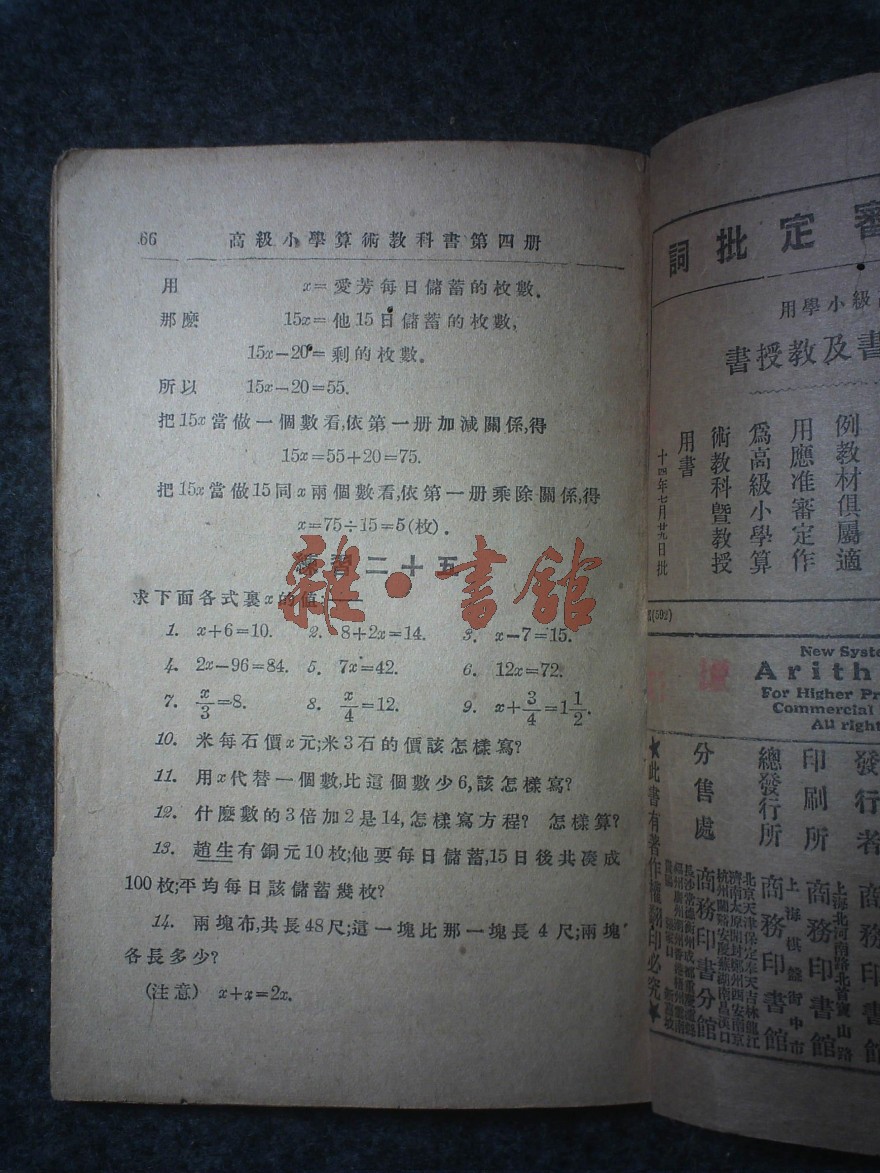 66 高級小學算術教科書第四册
用 x=愛芳每日儲蓄的枚數。
那麽 15x=他15日儲蓄的枚數,
15x-20=剩的枚數。
所以 15x-20=55.
把15x當做一個數看,依第一册加減關係,得
15x=55+20=75.
把15x當做15同x兩個數看,依第一册乘除關係,得
x=75÷15=5(枚).
練習二十五
雜·書館
求下面各式裏x的值:
1. x+6=10. 2. 8+2x=14. 3. x-7=15.
4. 2x-96=84. 5. 7x=42. 6. 12x=72.
7. x/3=8. 8. x/4=12. 9. x+3/4=1 1/2.
10. 米每石價x元;米3石的價該怎樣寫?
11. 用x代替一個數,比這個數少6,該怎樣寫?
12. 什麽數的3倍加2是14,怎樣寫方程? 怎樣算?
13. 趙生有銅元10枚;他要每日儲蓄,15日後共湊成
100枚;平均每日該儲蓄幾枚?
14. 兩塊布,共長48尺;這一塊比那一塊長4尺;兩塊
各長多少?
(注意) x+x=2x.
審定批詞
級小學用
書及教授書
例教材俱屬適
用應准審定作
爲高級小學算
術教科暨教授
用書
十四年七月廿九日批
(592)
New Syste
Arith
For Higher Pr
Commercial
All right
發行者
印刷所
總發行所
分售處
上海北河南路北首寶山路
商務印書館
上海棋盤街中市
商務印書館
商務印書分館
★此書有著作權翻印必究★